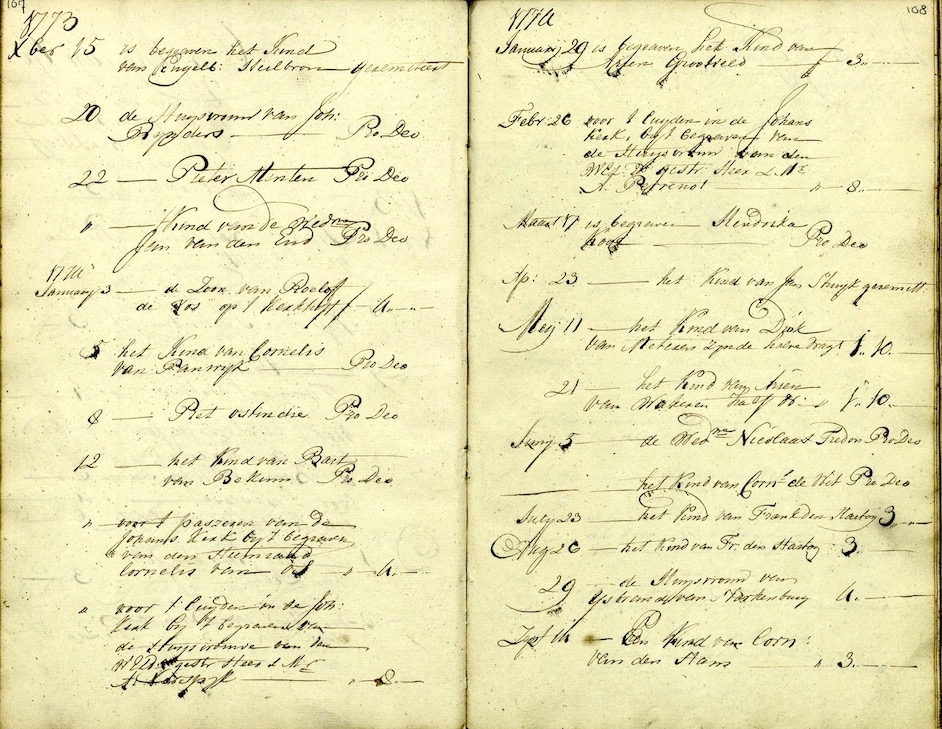 167
1773
Xber 15 is begraven het Kind
van Engelb: Heilbron geremitteert
20 de Huysvrouw van Joh:
Rijpders — Pro Deo
22 — Pieter Menten Pro Deo
" — Kind van de Wedne
Jan van den End Pro Deo
1774
January 3 — d Zoon van Roeloff
de Vos op t kerkhoff — 4..—..—
5 het Kind van Cornelis
van Panwijk — Pro Deo
8 — Piet ostindie Pro Deo
12 — het Kind van Bart
van Bekum Pro Deo
" — voor t passeren van de
Johans Kerk bij t begraven
van den Heemraad
Cornelis van Os — " 4.—
" voor t luyden in de Joh:
Kerk bij t begraven van
de Huysvrouwe van den
WED gestr Heer Mr
— " 8.—
168
1774
January 29 is begraven het Kind van
Arien Grootveld — f 3..—..—
Febr 26 voor t luyden in de Johans
Kerk, bij t begraven van
de Huysvrouw van den
WEd: gestr: Heer Mr
A. Perrenot " 8.—
Maart 17 is begraven Hendorka
— Pro Deo
Ap: 23 — het Kind van Jan Stuyt geremitt:
Meij 11 — het Kind van Dirk
van Meteren zijnde halve dragt 1.. 10.—
21 — het Kind van Arien
van Wakeren half do: " 1.. 10.—
Junij 5 — de Wedne Nicolaas Fredon Pro Deo
— het Kind van Corns de Wit Pro Deo
July 23 — het Kind van Frank den Hartog 3..—..—
Aug 26 — het Kind van Fr. den Hartog : 3.—
29 — de Huysvrouw van
IJsbrand van Varkenburg 4.—
7br 14 — Een Kind van Corn:
van den Ham — " 3.—..—